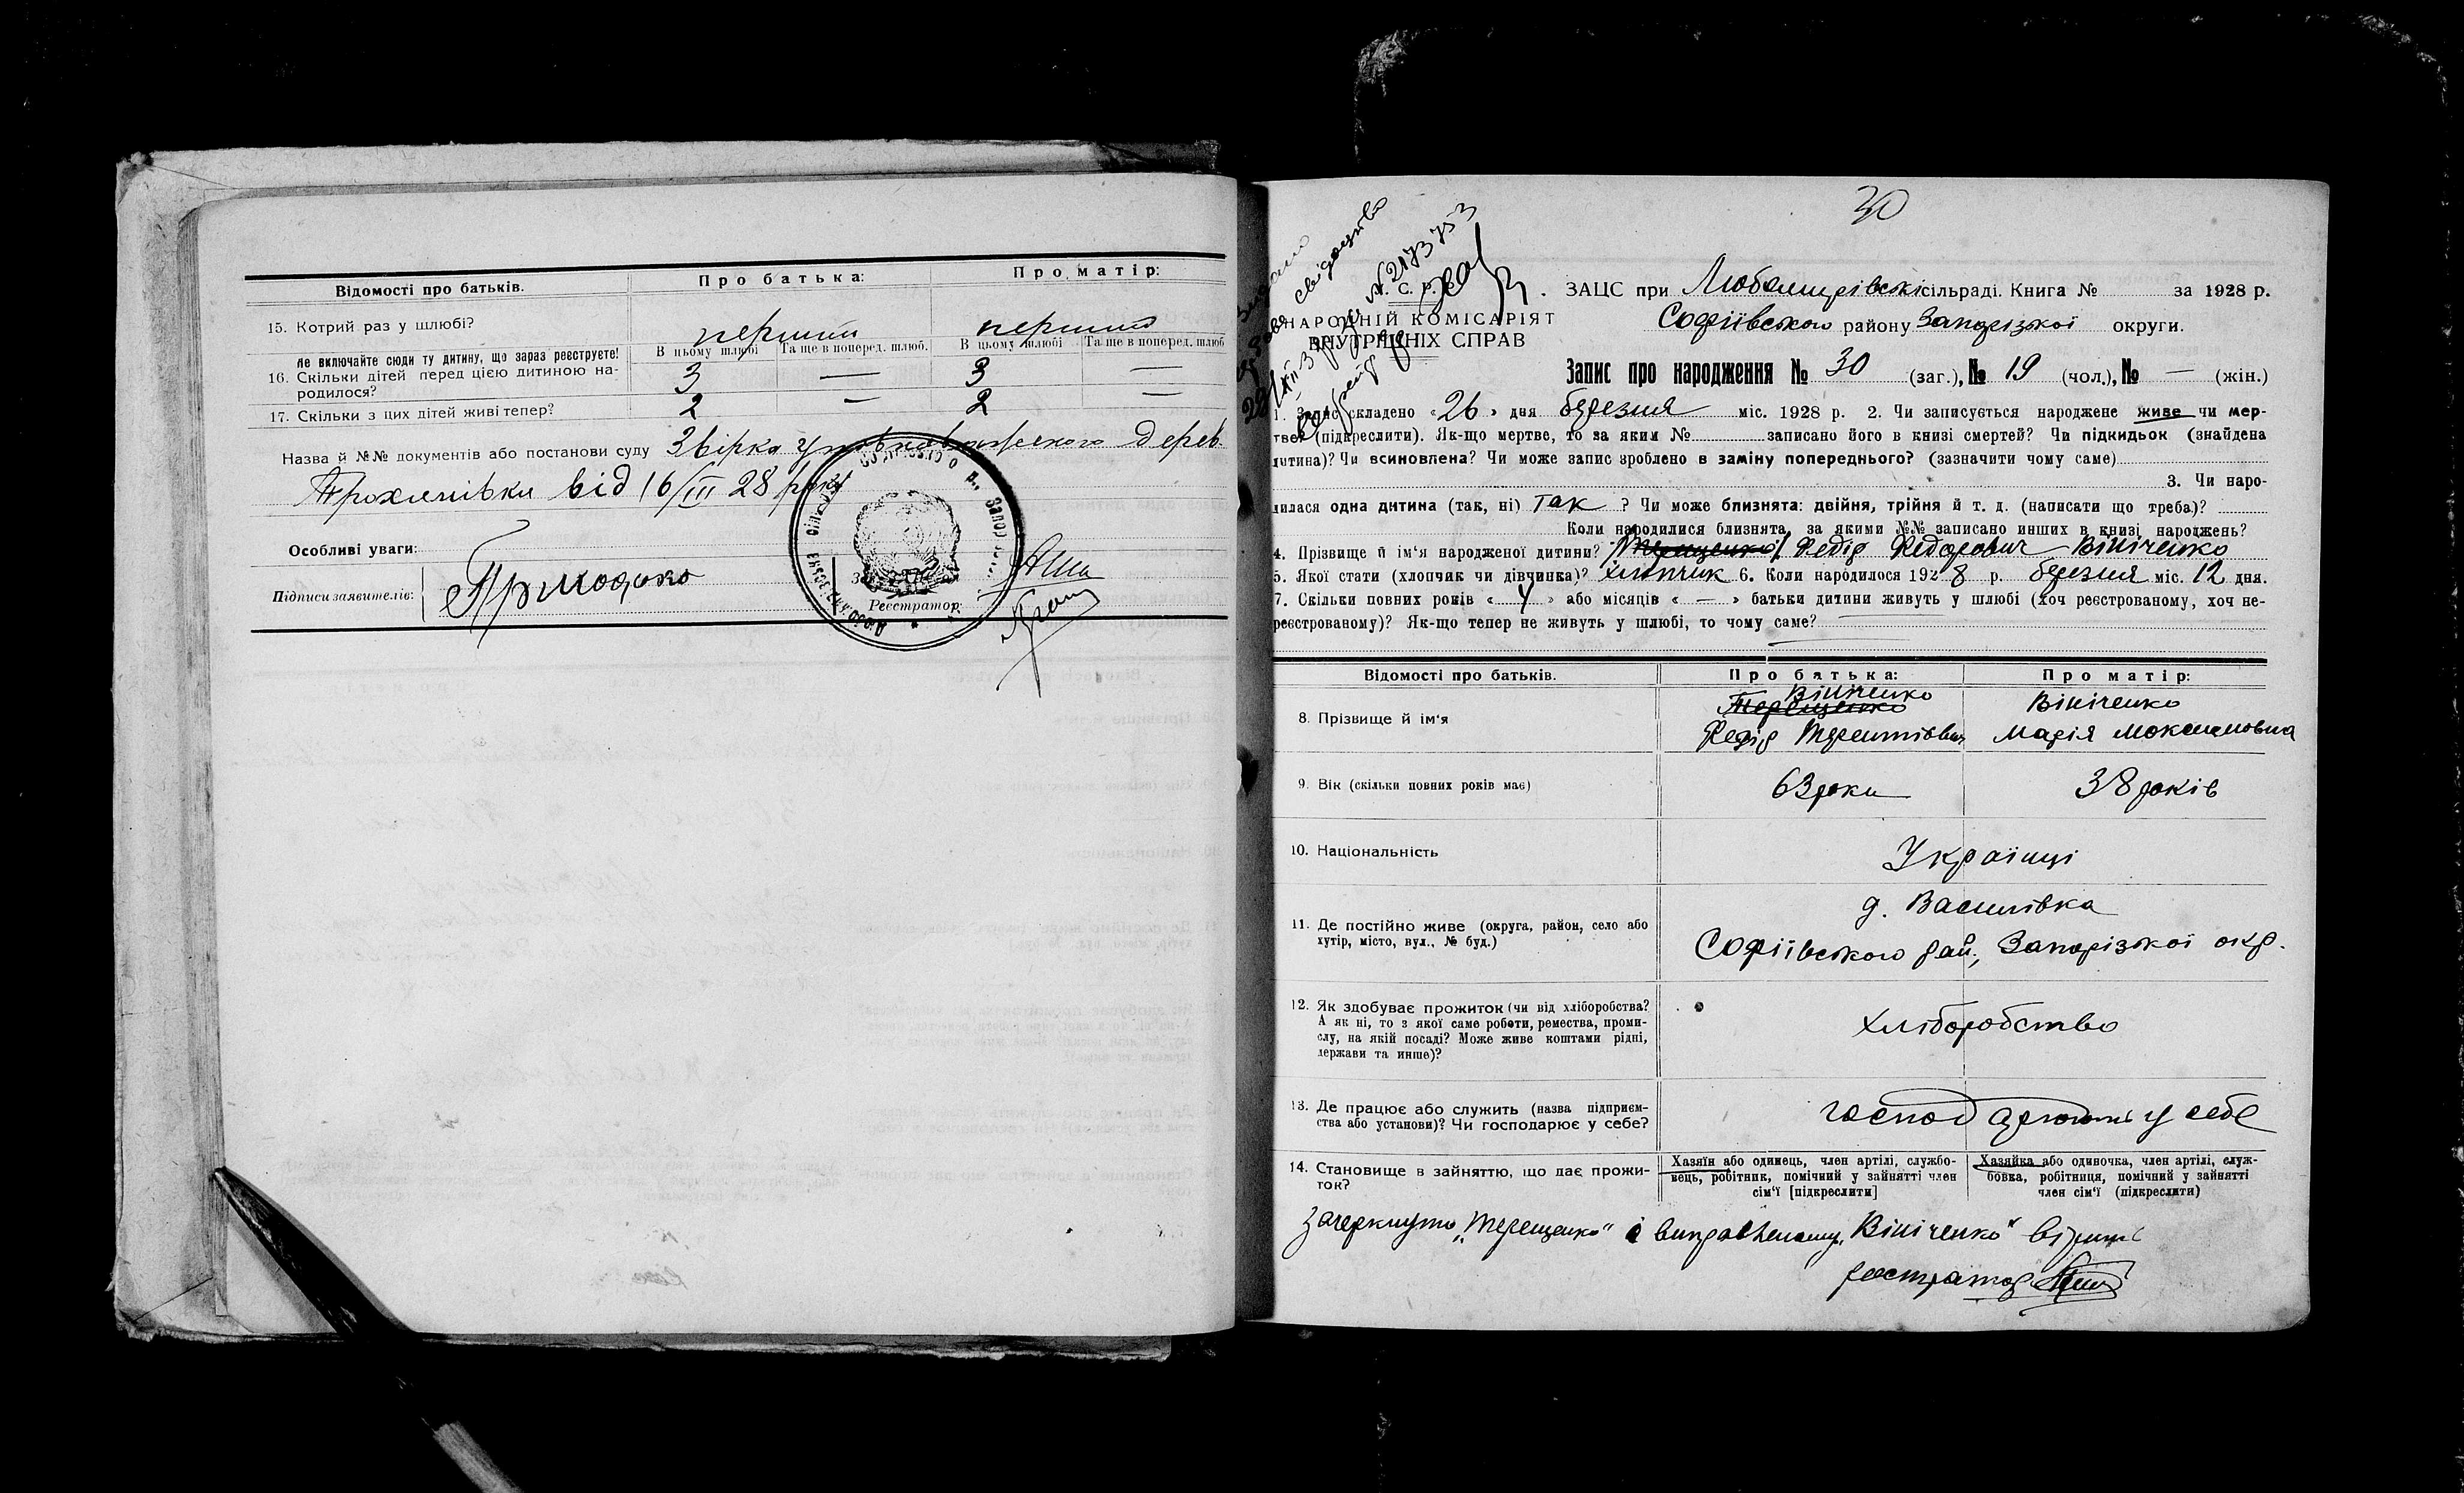 Відомості про батьків. Про батька: Про матір:
15. Котрий раз у шлюбі? перший перший
Не включайте сюди ту дитину, що зараз реєструєте! В цьому шлюбі Та ще в поперед. шлюб. В цьому шлюбі Та ще в поперед. шлюб
16. Скільки дітей перед цією дитиною на- 3 — 3 —
родилося?
17. Скільки з цих дітей живі тепер? 2 — 2 —
Назва й №№ документів або постанови суду Звірка дерев.
Трохимівки від 16/III 28 року
Особливі уваги:
Підписи заявителів: Примодоко
Реєстратор:
30
видано свідоцтво
№ 2173753
Н. С. Р. Р.
НАРОДНІЙ КОМІСАРІЯТ
ВНУТРІШНІХ СПРАВ
ЗАЦС при Любомирівські сільраді. Книга № за 1928 р.
Софіївського району Запорізької округи.
Запис про народження № 30 (заг.), № 19 (чол.), № — (жін.)
1. Запис складено «26» дня березня міс. 1928 р. 2. Чи записується народжене живе чи мер-
тве (підкреслити). Як-що мертве, то за яким № записано його в книзі смертей? Чи підкидьок (знайдена
дитина)? Чи всиновлена? Чи може запис зроблено в заміну попереднього? (зазначити чому саме)
3. Чи наро-
дилася одна дитина (так, ні) так ? Чи може близнята: двійня, трійня й т. д. (написати що треба)?
Коли народилися близнята, за якими №№ записано инших в книзі народжень?
4. Прізвище й ім‘я народженої дитини? Терещенко Федір Федорович Вініченко
5. Якої стати (хлопчик чи дівчинка)? хлопчик 6. Коли народилося 1928 р. березня міс. 12 дня.
7. Скільки повних років « 4 » або місяців « — » батьки дитини живуть у шлюбі (хоч реєстрованому, хоч не-
реєстрованому)? Як-що тепер не живуть у шлюбі, то чому саме?
Відомості про батьків. Про батька: Про матір:
8. Прізвище й ім‘я Вініченко Терещенко Федір Терентієвич Вініченко Марія Моксимовна
9. Вік (скільки повних років має) 63 роки 38 років
10. Національність Українці
11. Де постійно живе (округа, район, село або
хутір, місто, вул., № буд.)
д. Василівка
Софіївського рай., Запорізької окр.
12. Як здобуває прожиток (чи від хліборобства?
А як ні, то з якої саме роботи, ремества, проми-
слу, на якій посаді? Може живе коштами рідні,
держави та инше)?
хліборобство
13. Де працює або служить (назва підприєм-
ства або установи)? Чи господарює у себе?
у себе
14. Становище в зайняттю, що дає прожи-
ток?
Хазяїн або одинець, член артілі, службо-
вець, робітник, помічний у зайнятті член
сім‘ї [підкреслити]
Хазяйка або одиночка, член артілі, служ-
бовка, робітниця, помічний у зайнятті
член сім‘ї (підкреслити)
Зачеркнуто „Терещенко“ і виправленому „Вініченко“ вірить
реєстратор